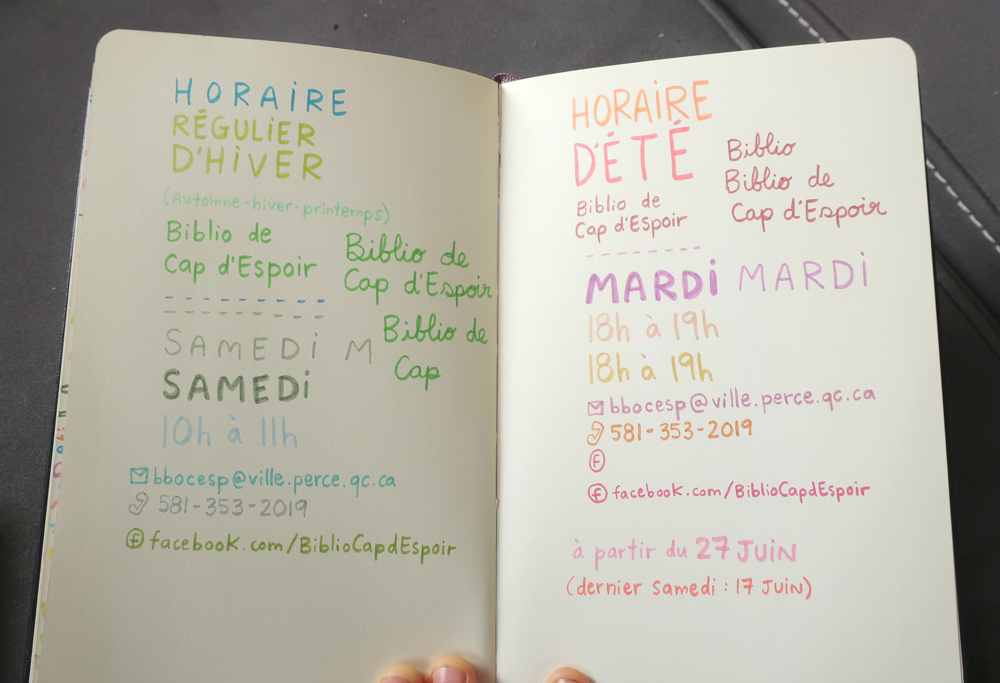 HORAIRE
RÉGULIER
D'HIVER
(Automne-hiver-printemps)
Biblio de
Cap d'Espoir
Biblio de
Cap d'Espoir
Biblio de
Cap
SAMEDI M
SAMEDI
10h à 11h
bbocesp@ville.perce.qc.ca
581-353-2019
facebook.com/BiblioCapdEspoir
HORAIRE
D'ÉTÉ
Biblio de
Cap d'Espoir
Biblio
Biblio de
Cap d'Espoir
MARDI MARDI
18h à 19h
18h à 19h
bbocesp@ville.perce.qc.ca
581-353-2019
f
f facebook.com/BiblioCapdEspoir
à partir du 27 JUIN
(dernier samedi : 17 JUIN)